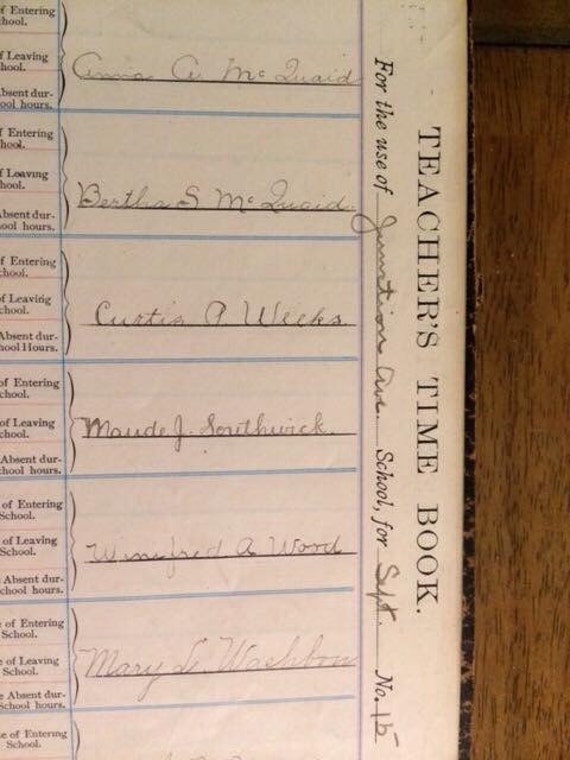 TEACHER'S TIME BOOK.
For the use of Junction Ave. School, for Sept. No. 15
f Entering
hool.
f Leaving
hool.
bsent dur-
ool hours.
Anna A McQuaid
f Entering
hool.
f Leaving
hool.
Absent dur-
ool hours.
Bertha S McQuaid
f Entering
chool.
f Leaving
chool.
Absent dur-
hool Hours.
Curtis A Weeks
of Entering
chool.
of Leaving
chool.
Absent dur-
chool hours.
Maude J. Southwick
of Entering
School.
of Leaving
School.
Absent dur-
chool hours.
Winifred A Wood
e of Entering
School.
e of Leaving
School.
e Absent dur-
School hours.
Mary L Washbon
e of Entering
School.